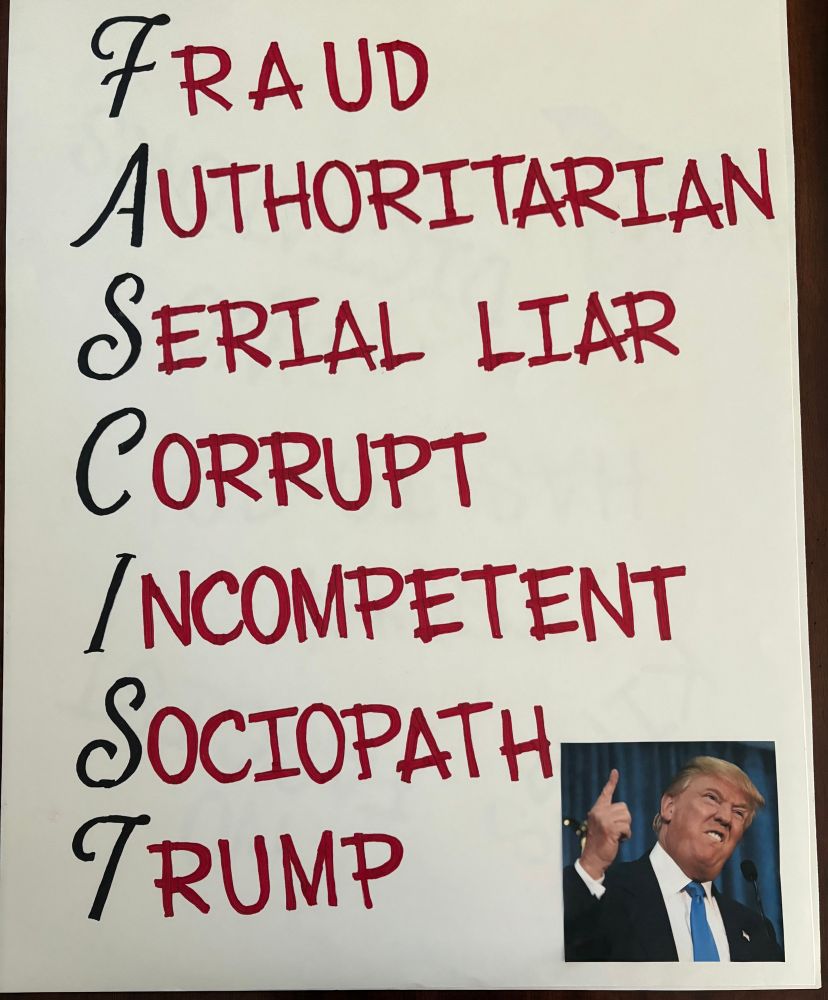 FRAUD
AUTHORITARIAN
SERIAL LIAR
CORRUPT
INCOMPETENT
SOCIOPATH
TRUMP